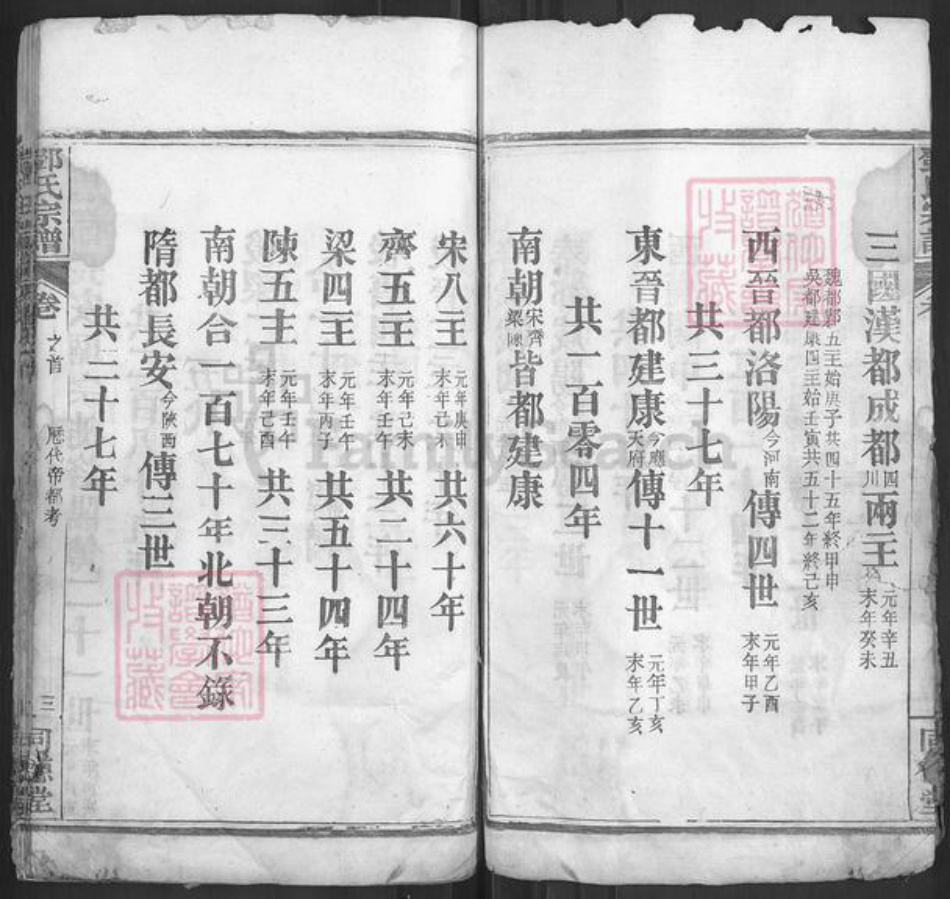 三國漢都成都四川兩主元年辛丑末年癸未
魏都鄴五主始庚子共四十五年終甲申
吳都建康四主始壬寅共五十二年終己亥
西晉都洛陽今河南傳四世元年乙酉末年甲子
共三十七年
東晉都建康今應天府傳十一世元年丁亥末年乙亥
共一百零四年
南朝宋齊梁陳皆都建康
宋八主元年庚申末年己未共六十年
齊五主元年己未末年壬午共二十四年
梁四主元年壬午末年丙子共五十四年
陳五主元年壬午末年己酉共三十三年
南朝合一百七十年北朝不錄
隋都長安今陝西傳三世
共三十七年
鄧氏宗譜
卷
之首
歷代帝都考
三
收藏
收藏
FamilySearch